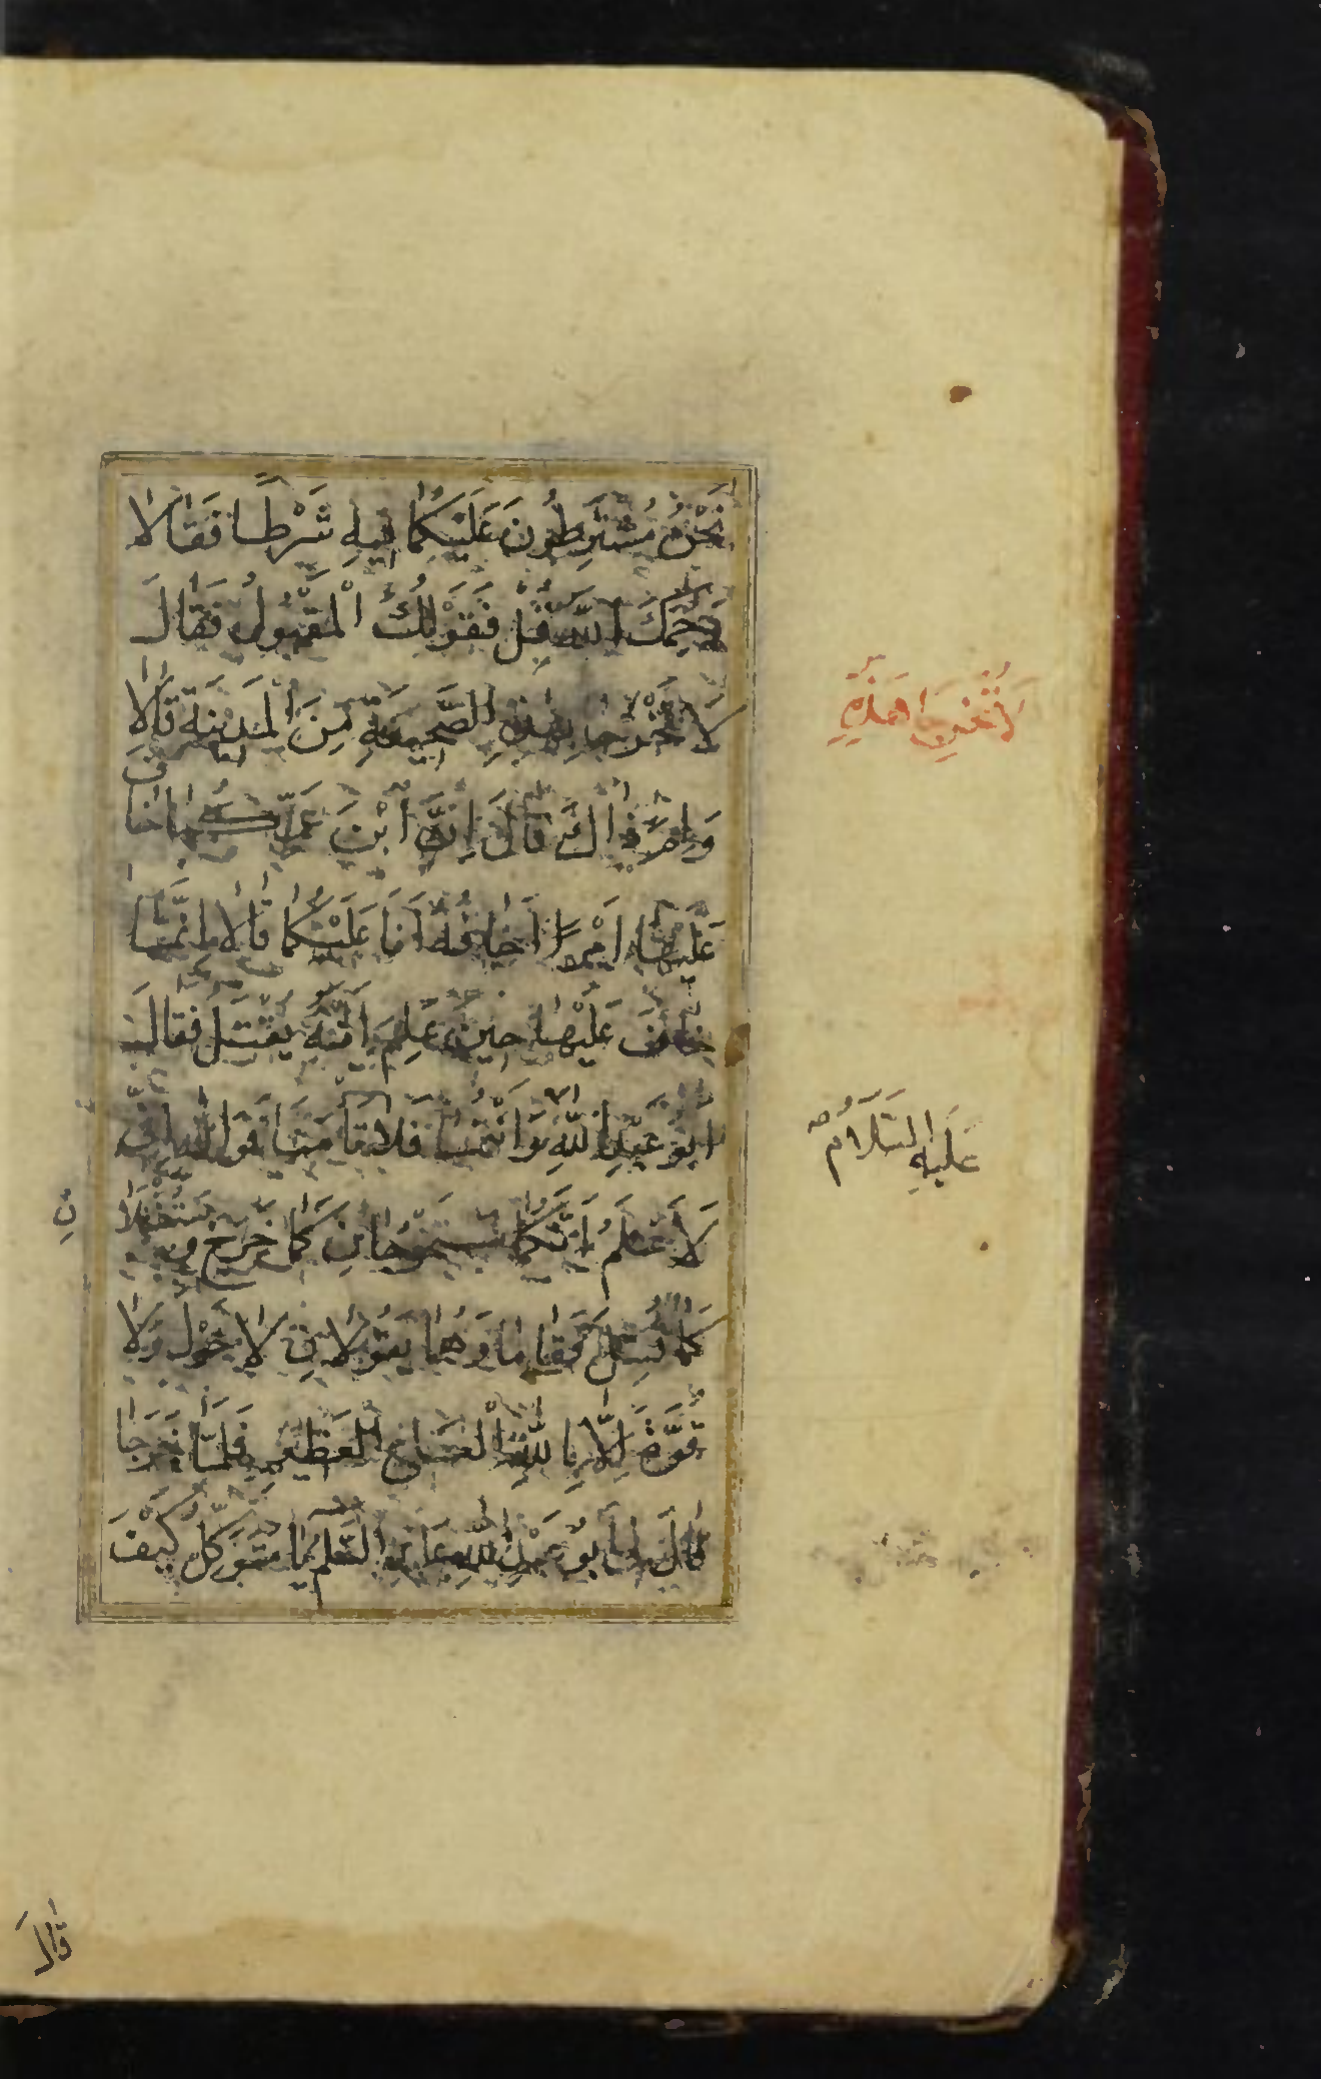 نَحْنُ مُشْتَرِطُونَ عَلَيْكُمَا فِيهِ شَرْطًا فَقَالَا
رَحِمَكَ اللَّهُ قُلْ فَقَوْلُكَ الْمَقْبُولُ فَقَالَ
لَا تَخْرُجَا بِهٰذِهِ الصَّحِيفَةِ مِنَ الْمَدِينَةِ قَالَا
وَلِمَ ذَاكَ قَالَ إِنَّ ابْنَ عَمِّكُمَا خَافَ
عَلَيْهَا أَمْرًا أَخَافُهُ أَنَا عَلَيْكُمَا قَالَا إِنَّمَا
خَافَ عَلَيْهَا حِينَ عَلِمَ أَنَّهُ يُقْتَلُ فَقَالَ
أَبُو عَبْدِ اللَّهِ وَأَنْتُمَا فَلَا تَأْمَنَا فَوَاللَّهِ إِنِّي
لَأَعْلَمُ أَنَّكُمَا سَتَخْرُجَانِ كَمَا خَرَجَ وَسَتُقْتَلَانِ
كَمَا قُتِلَ فَقَامَا وَهُمَا يَقُولَانِ لَا حَوْلَ وَلَا
قُوَّةَ إِلَّا بِاللَّهِ الْعَلِيِّ الْعَظِيمِ فَلَمَّا خَرَجَا
قَالَ لِي أَبُو عَبْدِ اللَّهِ عَلَيْهِ السَّلَمُ يَا مُتَوَكِّلُ كَيْفَ
عَلَيْهِ السَّلَامُ
قَالَ